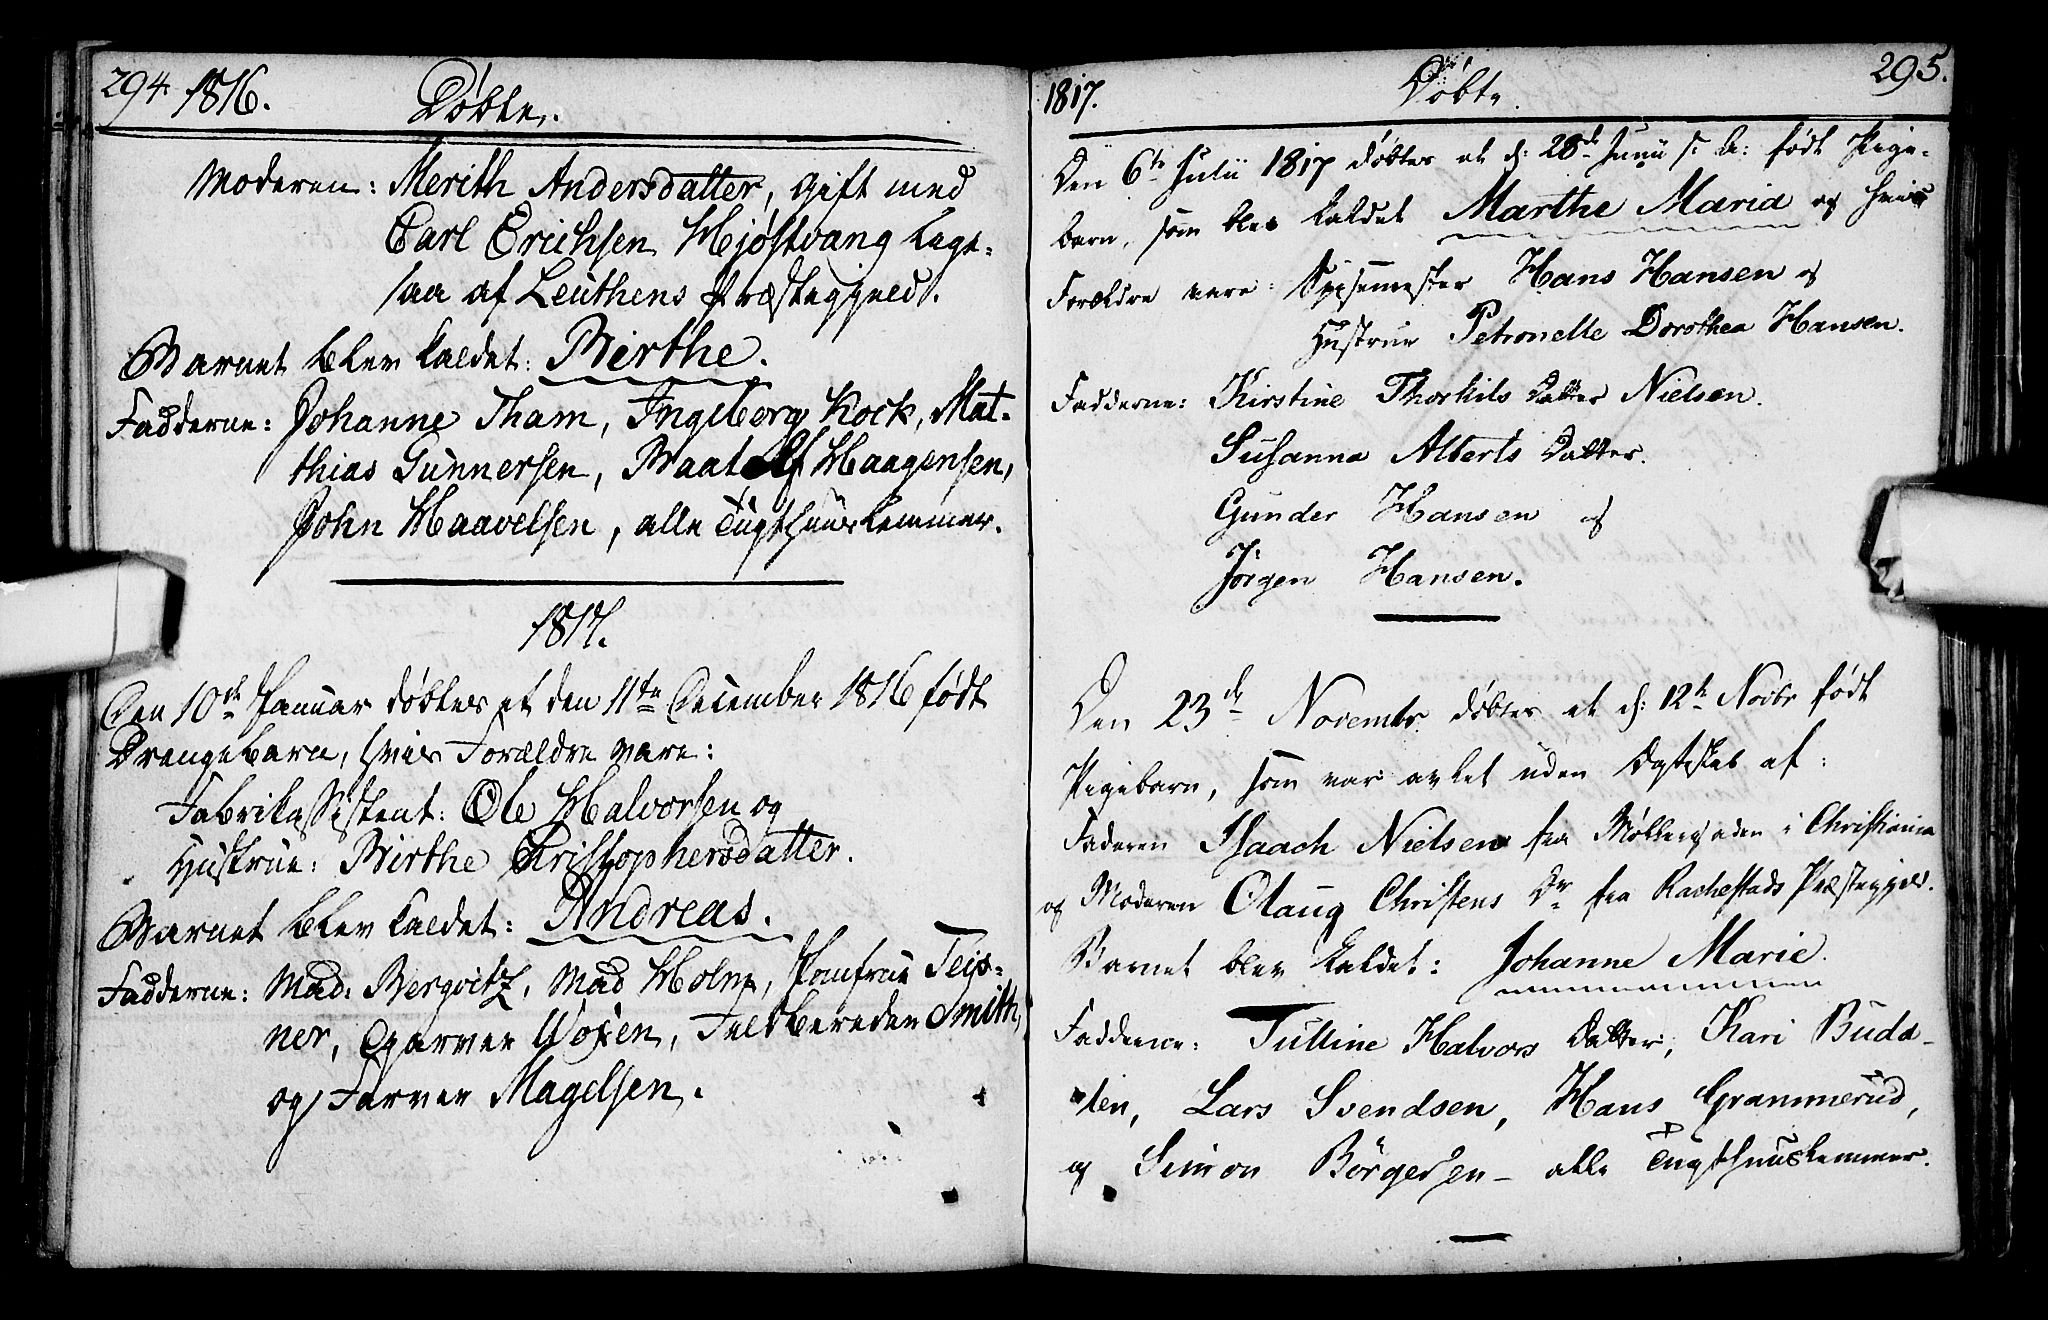 294. 1816. Döbte.
Moderen: Merith Andersdatter, gift med
Carl Erichsen Hjöstvang Lege-
/aa af Leuthens Præstegjeld.
Barnet blev kaldet: Birthe.
Fadderne: Johanne Tham, Ingeborg Kock, Mat-
thias Gunnersen, Haagensen,
John Haavelsen, alle Tugthuuslemmer.
1817.
Den 10de Januar döbtes et den 11te December 1816 födt
Drengebarn, hvis Forældre vare:
Fabrikassistent: Ole Halvorsen og
Hustrue: Birthe Christophersdatter.
Barnet blev kaldet: Andreas.
Fadderne: Mad: Bergvitz, Mad Holm, Jomfrue Teis-
ner, Garver Woxen, Feldbereder Smith,
og Farver Magelsen.
1817. Döbte. 295.
Den 6te Julii 1817 döbtes et d: 28de Junii s: A: födt Pige-
barn, som blev kaldet Marthe Maria og hvis
Forældre vare: Spisemester Hans Hansen og
Hustrue Petronelle Dorothea Hansen.
Fadderne: Kirstine Thorkils Datter Nielsen.
Susanna Alberts Datter.
Gunder Hansen og
Jörgen Hansen.
Den 23de Novembr. döbtes et d: 12te Novbr födt
Pigebarn, som var avlet uden Ægteskab af:
Faderen Isaach Nielsen fra Möllergaden i Christiania
og Moderen Olaug Christens Dr fra Rachestads Præstegjeld.
Barnet blev kaldet: Johanne Marie.
Fadderne: Tulline Halvors Datter, Kari Buda-
len, Lars Svendsen, Hans Grammerud,
og Simon Börgersen - alle Tugthuuslemmer.